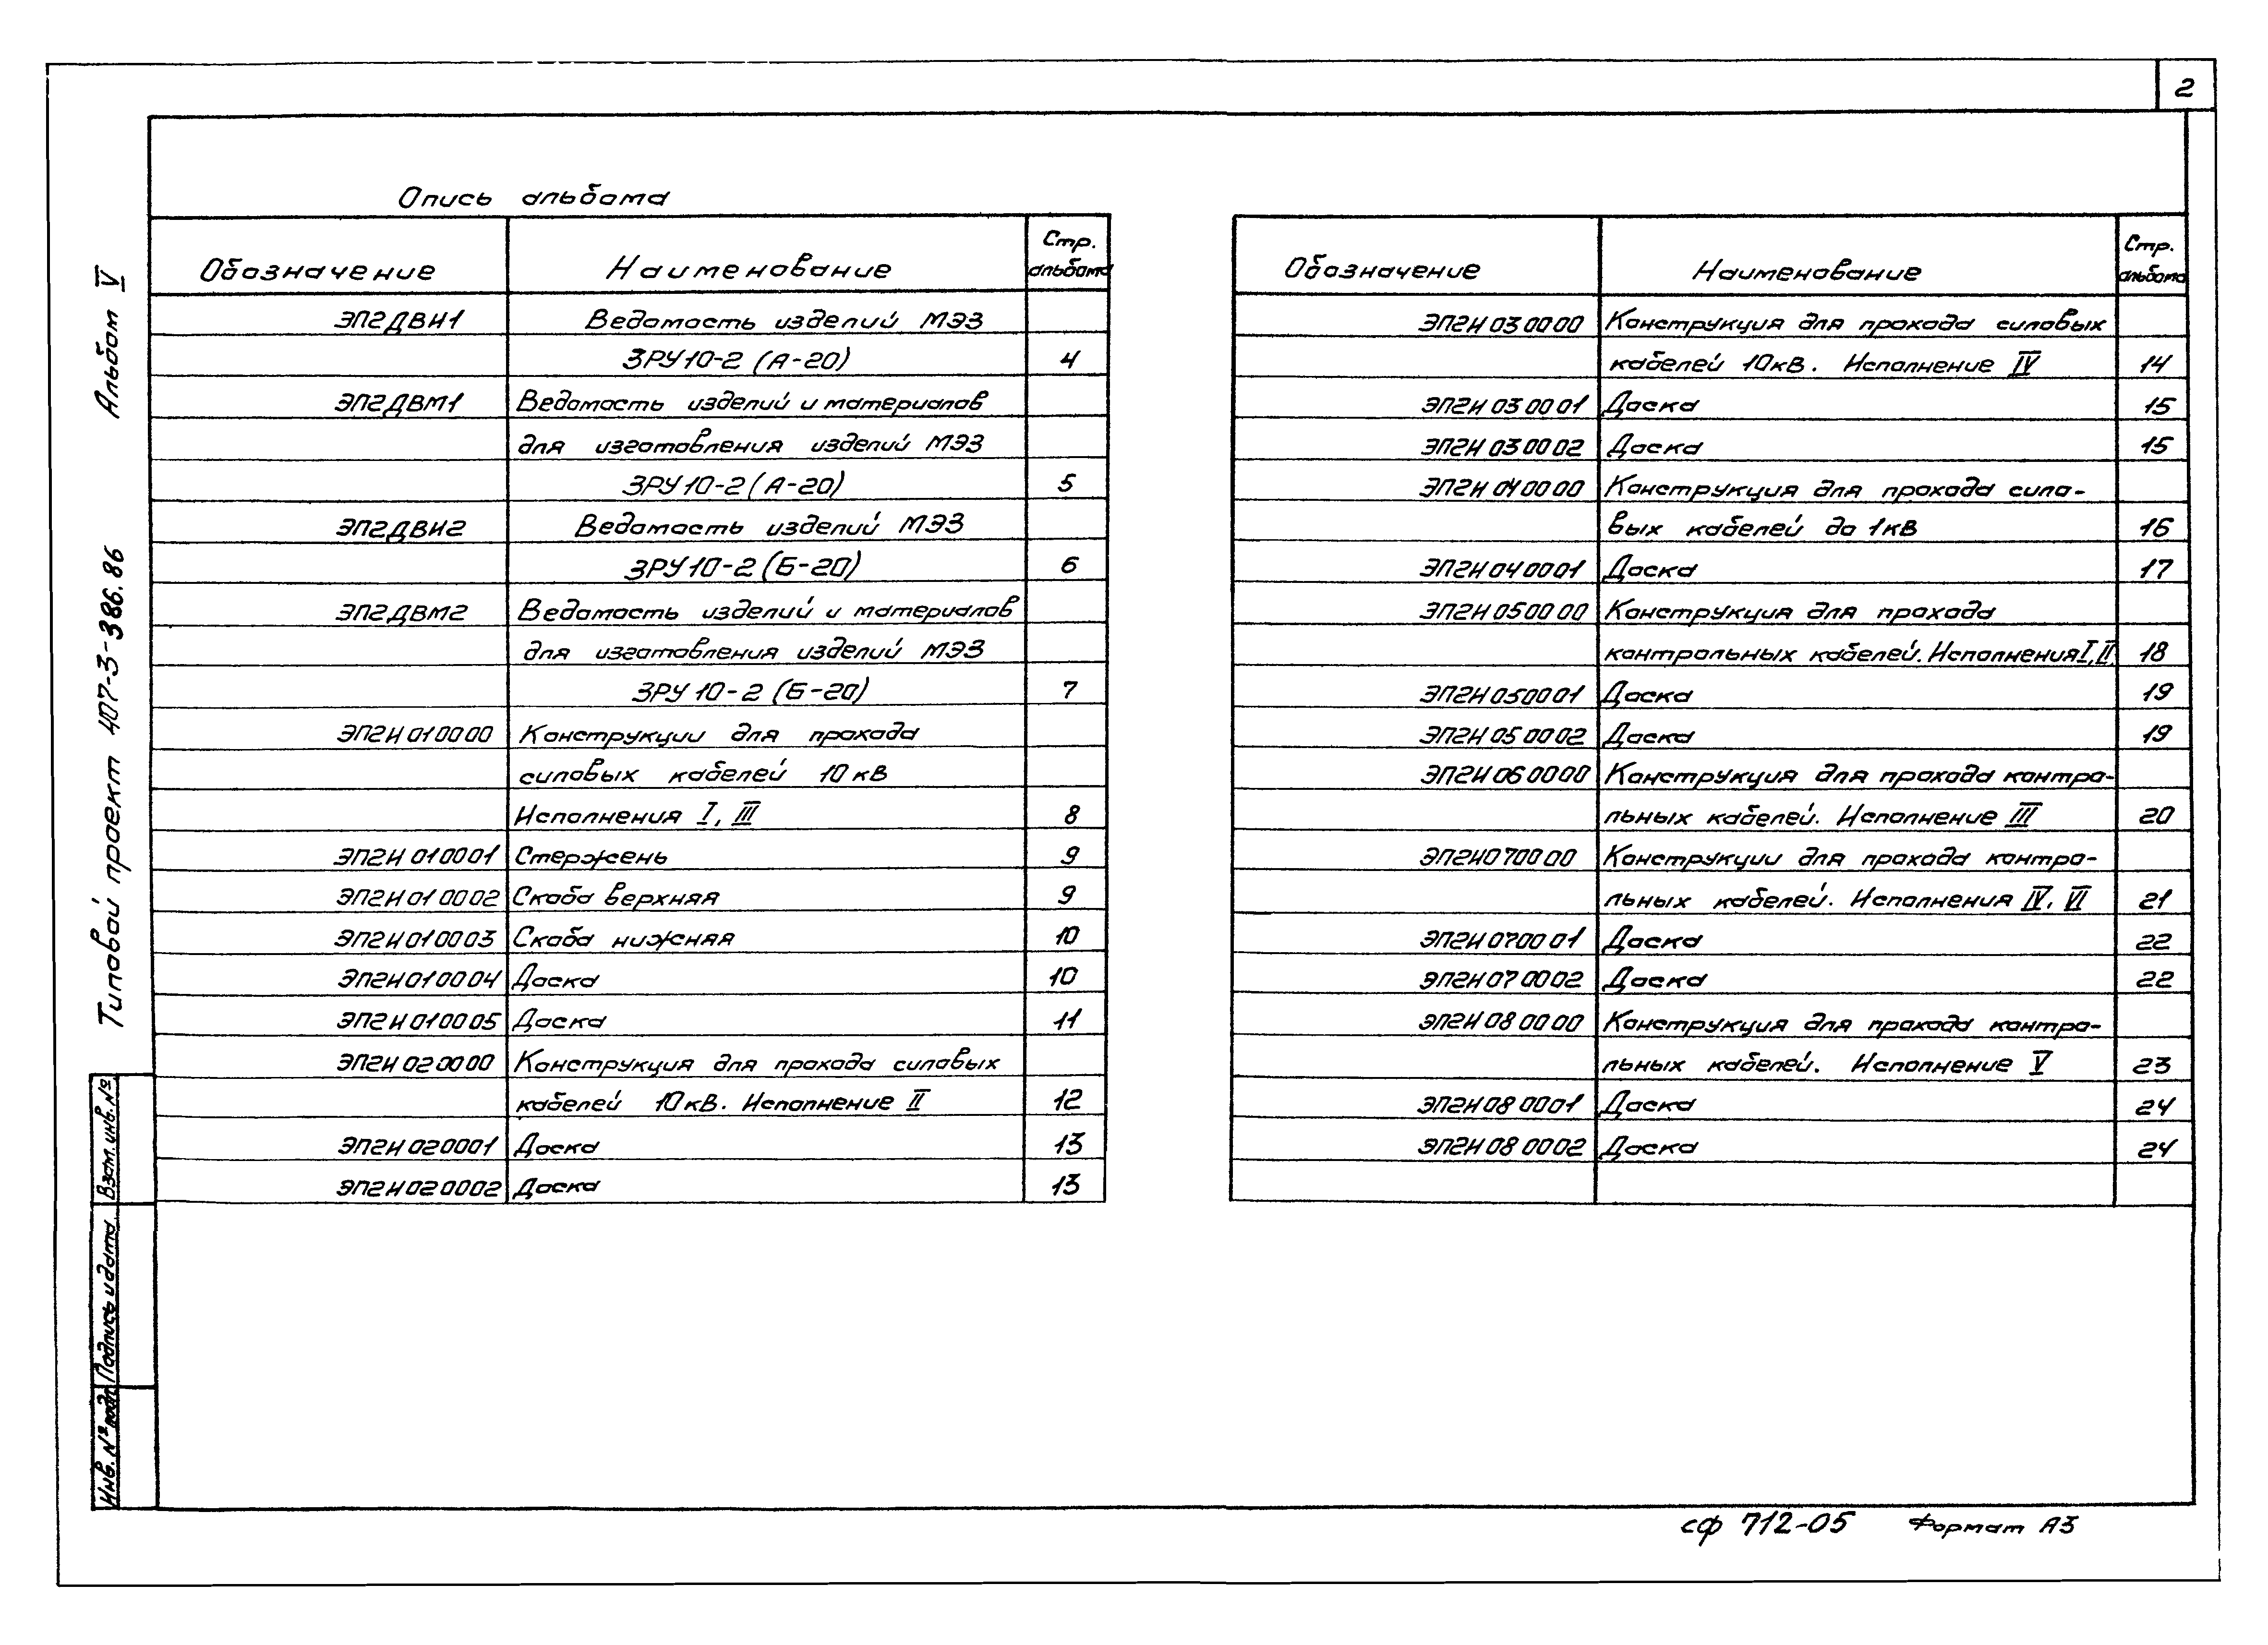 2
Опись альбома
Обозначение Наименование Стр. альбома
ЭП2ДВИ1 Ведомость изделий МЭЗ
ЗРУ10-2 (А-20) 4
ЭП2ДВМ1 Ведомость изделий и материалов
для изготовления изделий МЭЗ
ЗРУ10-2 (А-20) 5
ЭП2ДВИ2 Ведомость изделий МЭЗ
ЗРУ10-2 (Б-20) 6
ЭП2ДВМ2 Ведомость изделий и материалов
для изготовления изделий МЭЗ
ЗРУ10-2 (Б-20) 7
ЭП2И010000 Конструкции для прохода
силовых кабелей 10кВ
Исполнения I, III 8
ЭП2И010001 Стержень 9
ЭП2И010002 Скоба верхняя 9
ЭП2И010003 Скоба нижняя 10
ЭП2И010004 Доска 10
ЭП2И010005 Доска 11
ЭП2И020000 Конструкция для прохода силовых
кабелей 10кВ. Исполнение II 12
ЭП2И020001 Доска 13
ЭП2И020002 Доска 13
Обозначение Наименование Стр. альбома
ЭП2И030000 Конструкция для прохода силовых
кабелей 10кВ. Исполнение IV 14
ЭП2И030001 Доска 15
ЭП2И030002 Доска 15
ЭП2И040000 Конструкция для прохода сило-
вых кабелей до 1кВ 16
ЭП2И040001 Доска 17
ЭП2И050000 Конструкция для прохода
контрольных кабелей. Исполнения I, II 18
ЭП2И050001 Доска 19
ЭП2И050002 Доска 19
ЭП2И060000 Конструкция для прохода контро-
льных кабелей. Исполнение III 20
ЭП2И070000 Конструкции для прохода контро-
льных кабелей. Исполнения IV, VI 21
ЭП2И070001 Доска 22
ЭП2И070002 Доска 22
ЭП2И080000 Конструкция для прохода контро-
льных кабелей. Исполнение V 23
ЭП2И080001 Доска 24
ЭП2И080002 Доска 24
Типовой проект 407-3-386.86 Альбом V
Взам. инв. №
Подпись и дата
Инв. № подл.
сф 712-05 Формат А3